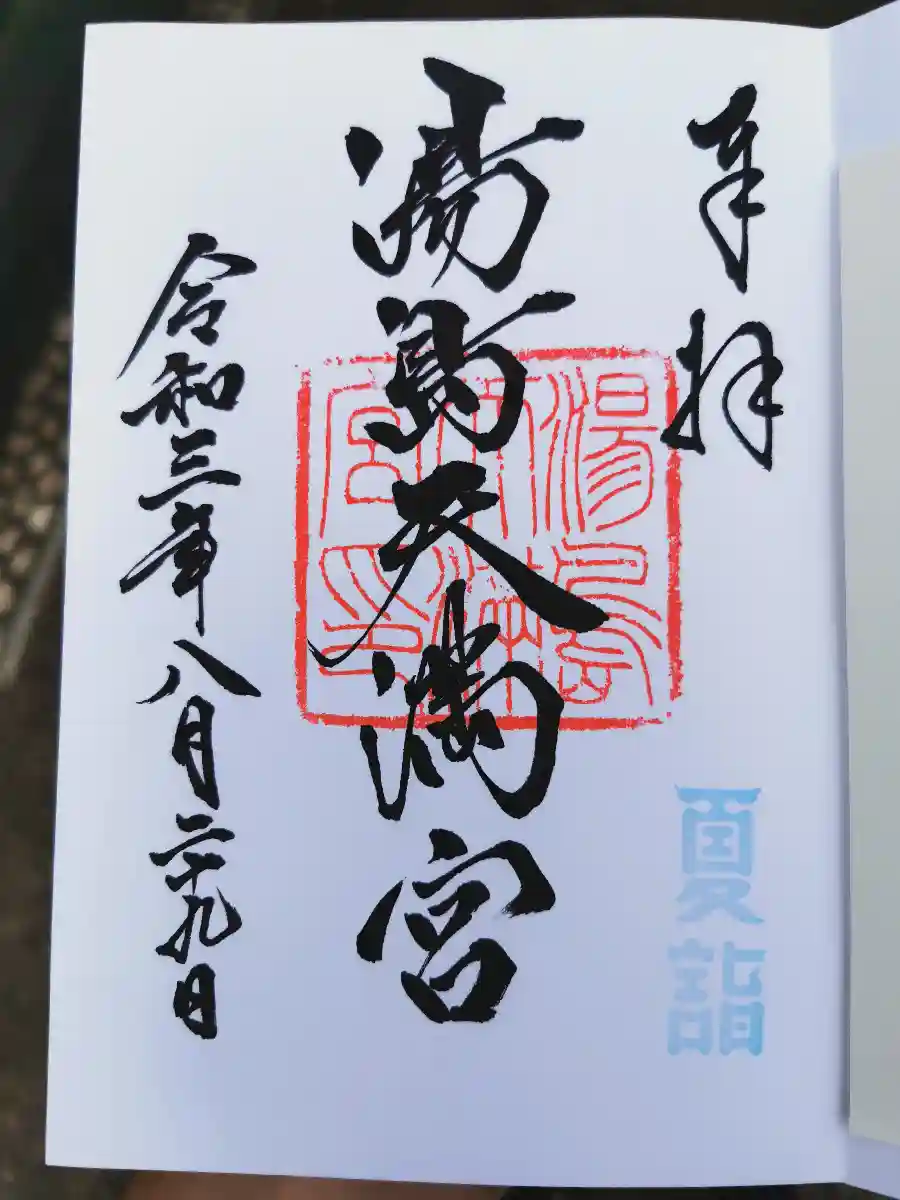 奉拝
夏詣
湯島天満宮
湯島天満宮印
令和三年八月二十九日